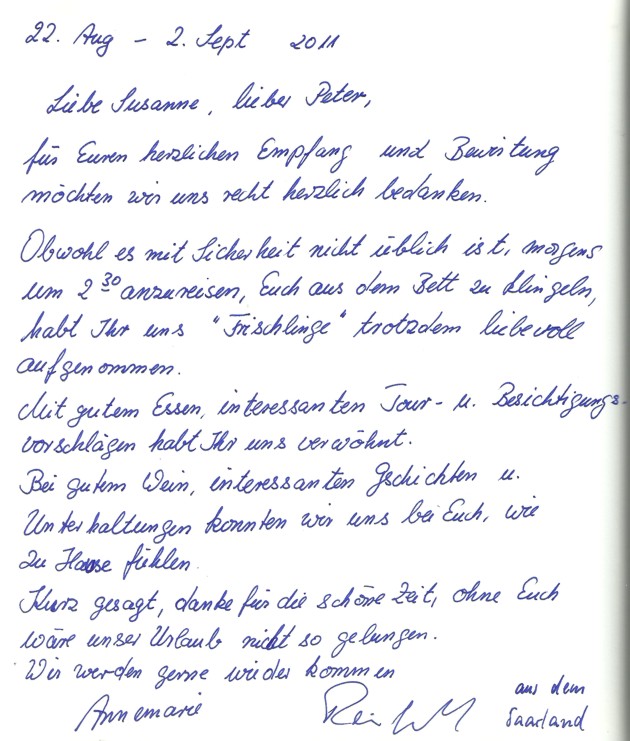 22. Aug - 2. Sept 2011
Liebe Susanne, lieber Peter,
für Euren herzlichen Empfang und Bewirtung
möchten wir uns recht herzlich bedanken.
Obwohl es mit Sicherheit nicht üblich ist, morgens
um 2 30 anzureisen, Euch aus dem Bett zu klingeln,
habt Ihr uns "Frischlinge" trotzdem liebevoll
aufgenommen.
Mit gutem Essen, interessanten Tour- u. Besichtigungs-
vorschlägen habt Ihr uns verwöhnt.
Bei gutem Wein, interessanten Gschichten u.
Unterhaltungen konnten wir uns bei Euch, wie
zu Hause fühlen.
Kurz gesagt, danke für die schöne Zeit, ohne Euch
wäre unser Urlaub nicht so gelungen.
Wir werden gerne wieder kommen
Annemarie aus dem
Saarland